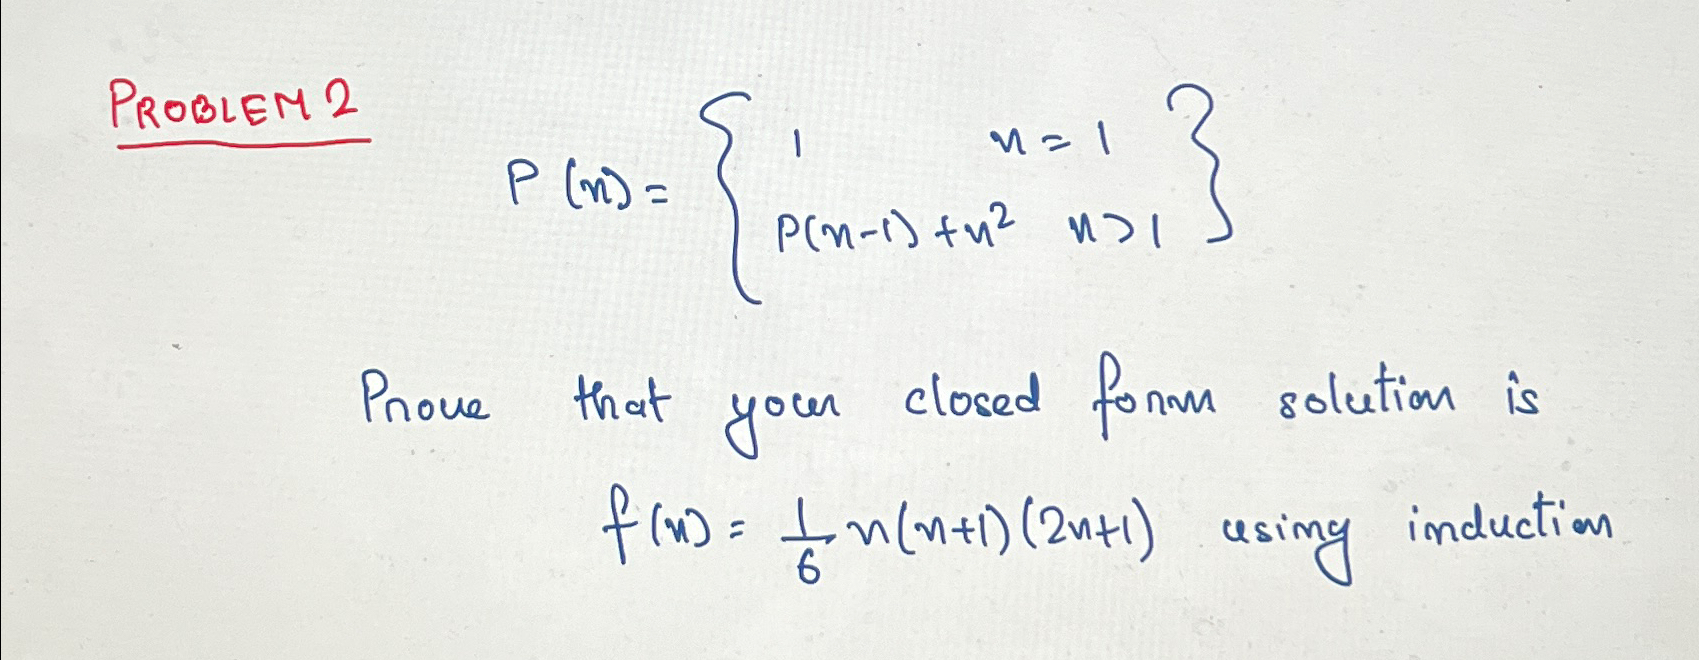 PROBLEM 2
P(n) = { 1 n = 1
P(n-1) + n² n > 1 }
Prove that your closed form solution is
f(n) = 1/6 n(n+1)(2n+1) using induction